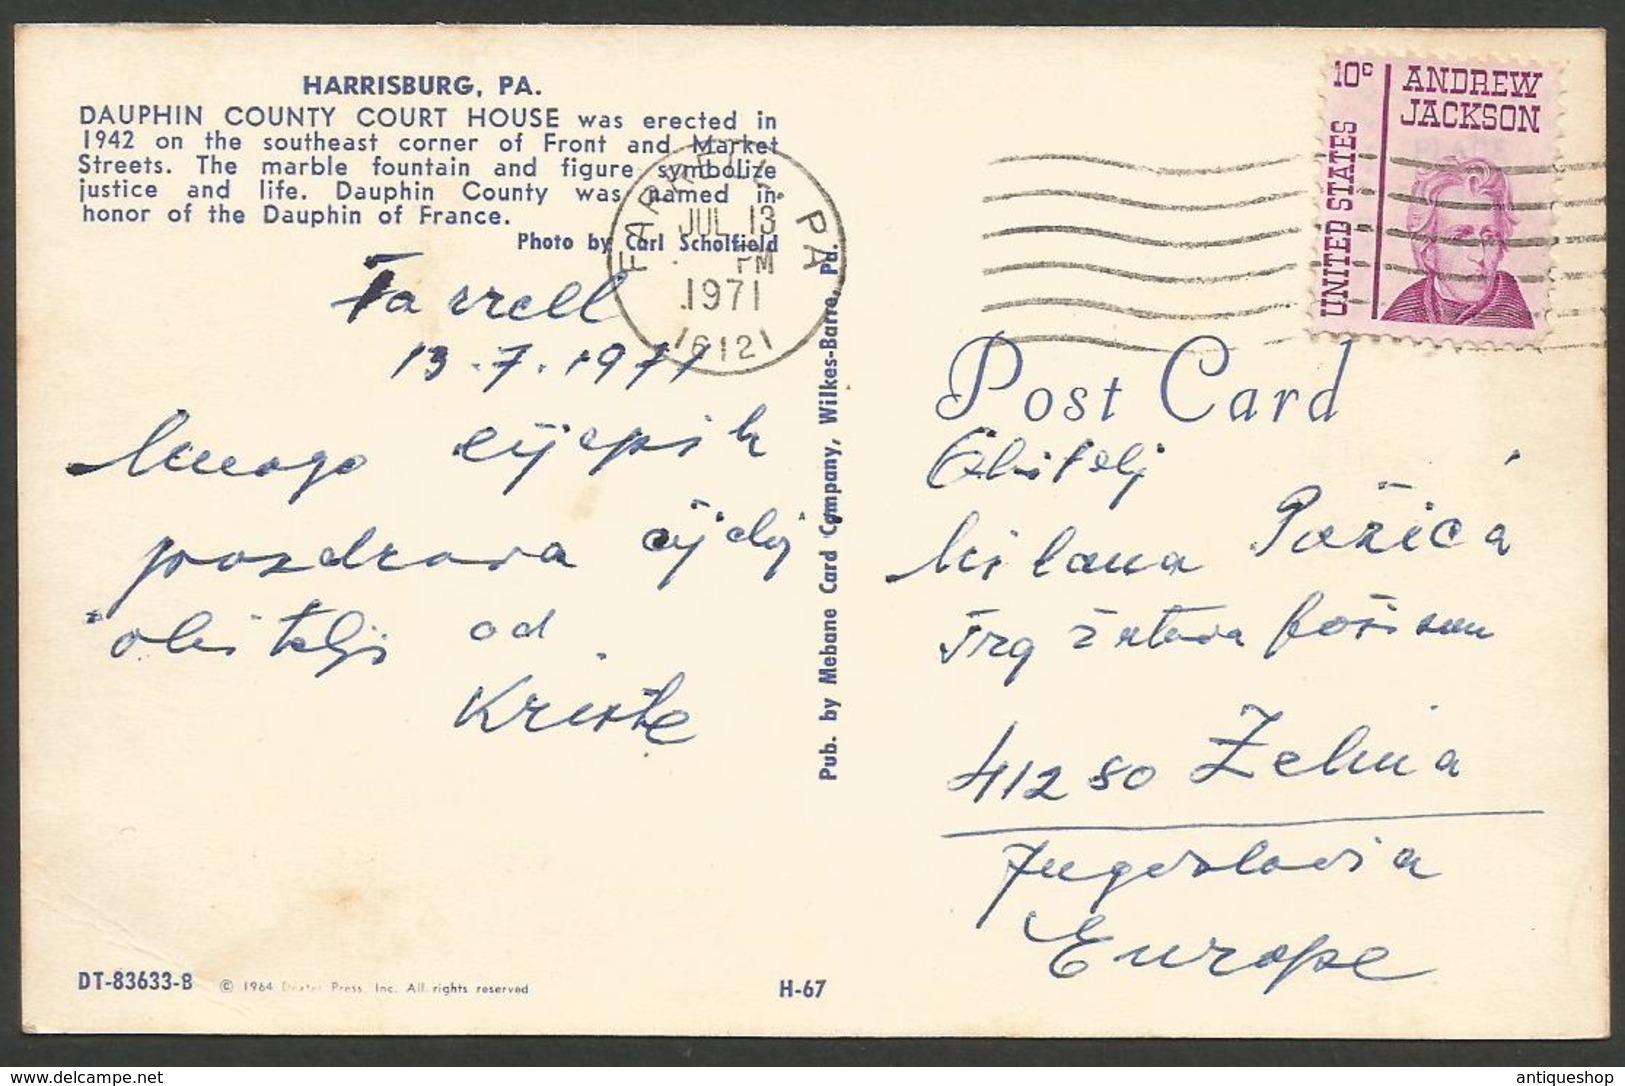 HARRISBURG, PA.
DAUPHIN COUNTY COURT HOUSE was erected in
1942 on the southeast corner of Front and Market
Streets. The marble fountain and figure symbolize
justice and life. Dauphin County was named in
honor of the Dauphin of France.
Photo by Carl Scholfield
Farrell
13.7.1971
Mnogo lijepih
pozdrava cijeloj
obitelji od
Krište
DT-83633-B
© 1964 Dexter Press, Inc. All rights reserved
H-67
Pub. by Mebane Card Company, Wilkes-Barre, Pa.
FARRELL, PA
JUL 13
PM
1971
1612
10c
ANDREW
JACKSON
UNITED STATES
PLACE
Post Card
Obitelj
Milana Požića
Trg žrtava fašizma
41280 Zelina
Jugoslavia
Europe
www.delcampe.net
antiqueshop